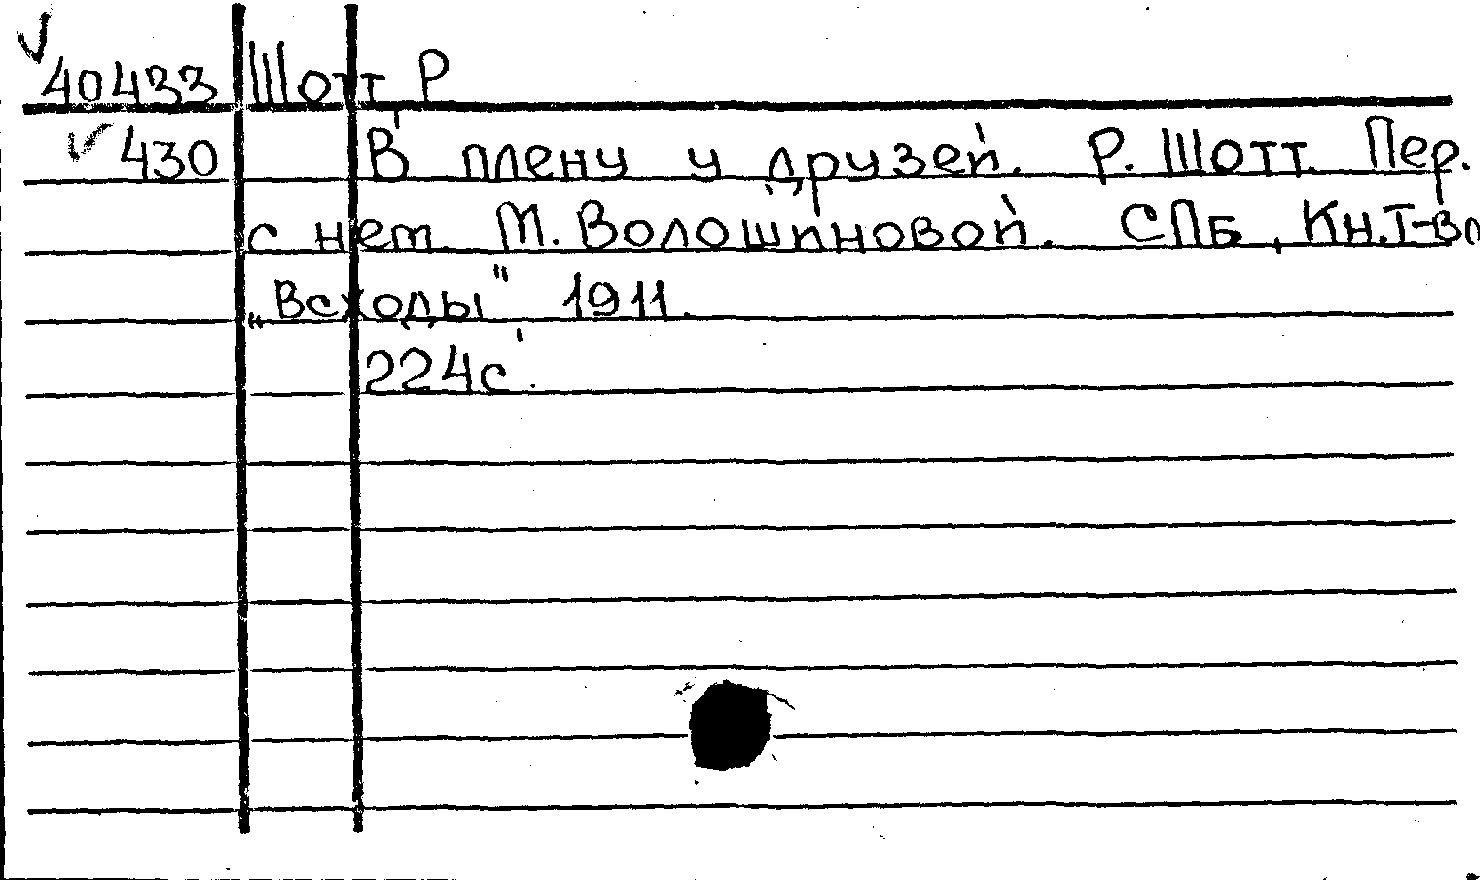 40433 Шотт, Р
430 В плену у друзей. Р. Шотт. Пер.
с нем. М. Волошиновой. СПб, Кн. Т-во
„Всходы" 1911.
224с.